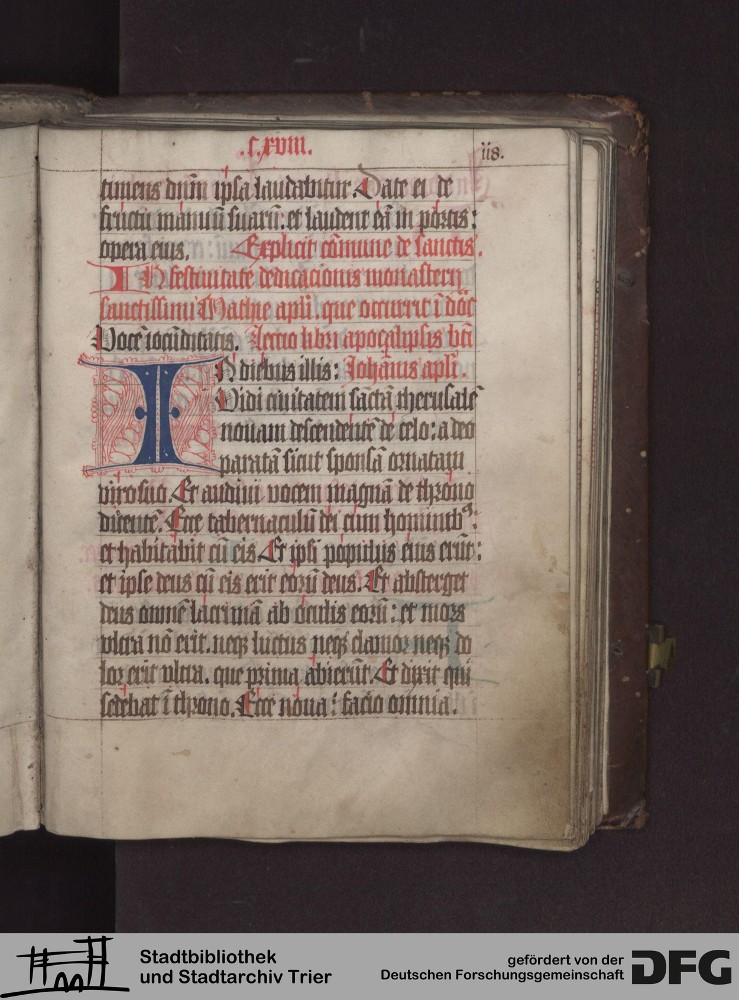 .C.xviii.
118.
timens dnm̄ ipsa laudabitur. Date ei de
fructu manuū suarū: et laudent eā in portis:
opera eius. Explicit cōmune de sanctis.
IN festiuitate dedicacionis monasterij
sanctissimi Mathie apli. que occurrit ī dōc̄
Vocē iocūditatis. Lectio libri apocalipsis bti
IN diebus illis: Johānis apli.
Vidi ciuitatem sāctā iherusalē
nouam descendentē de celo: a deo
paratā sicut sponsā ornatam
viro suo. Et audiui vocem magnā de throno
dicentē. Ecce tabernaculū dei cum hominibꝰ:
et habitabit cū eis. Et ipsi populus eius erūt:
et ipse deus cū eis erit eorū deus. Et absterget
deus omnē lacrimā ab oculis eorū: et mors
vltra nō erit. neqꝫ luctus neqꝫ clamor neqꝫ do
lor erit vltra. que prima abierūt. Et dixit qui
sedebat ī throno. Ecce noua: facio omnia.
Stadtbibliothek
und Stadtarchiv Trier
gefördert von der
Deutschen Forschungsgemeinschaft
DFG